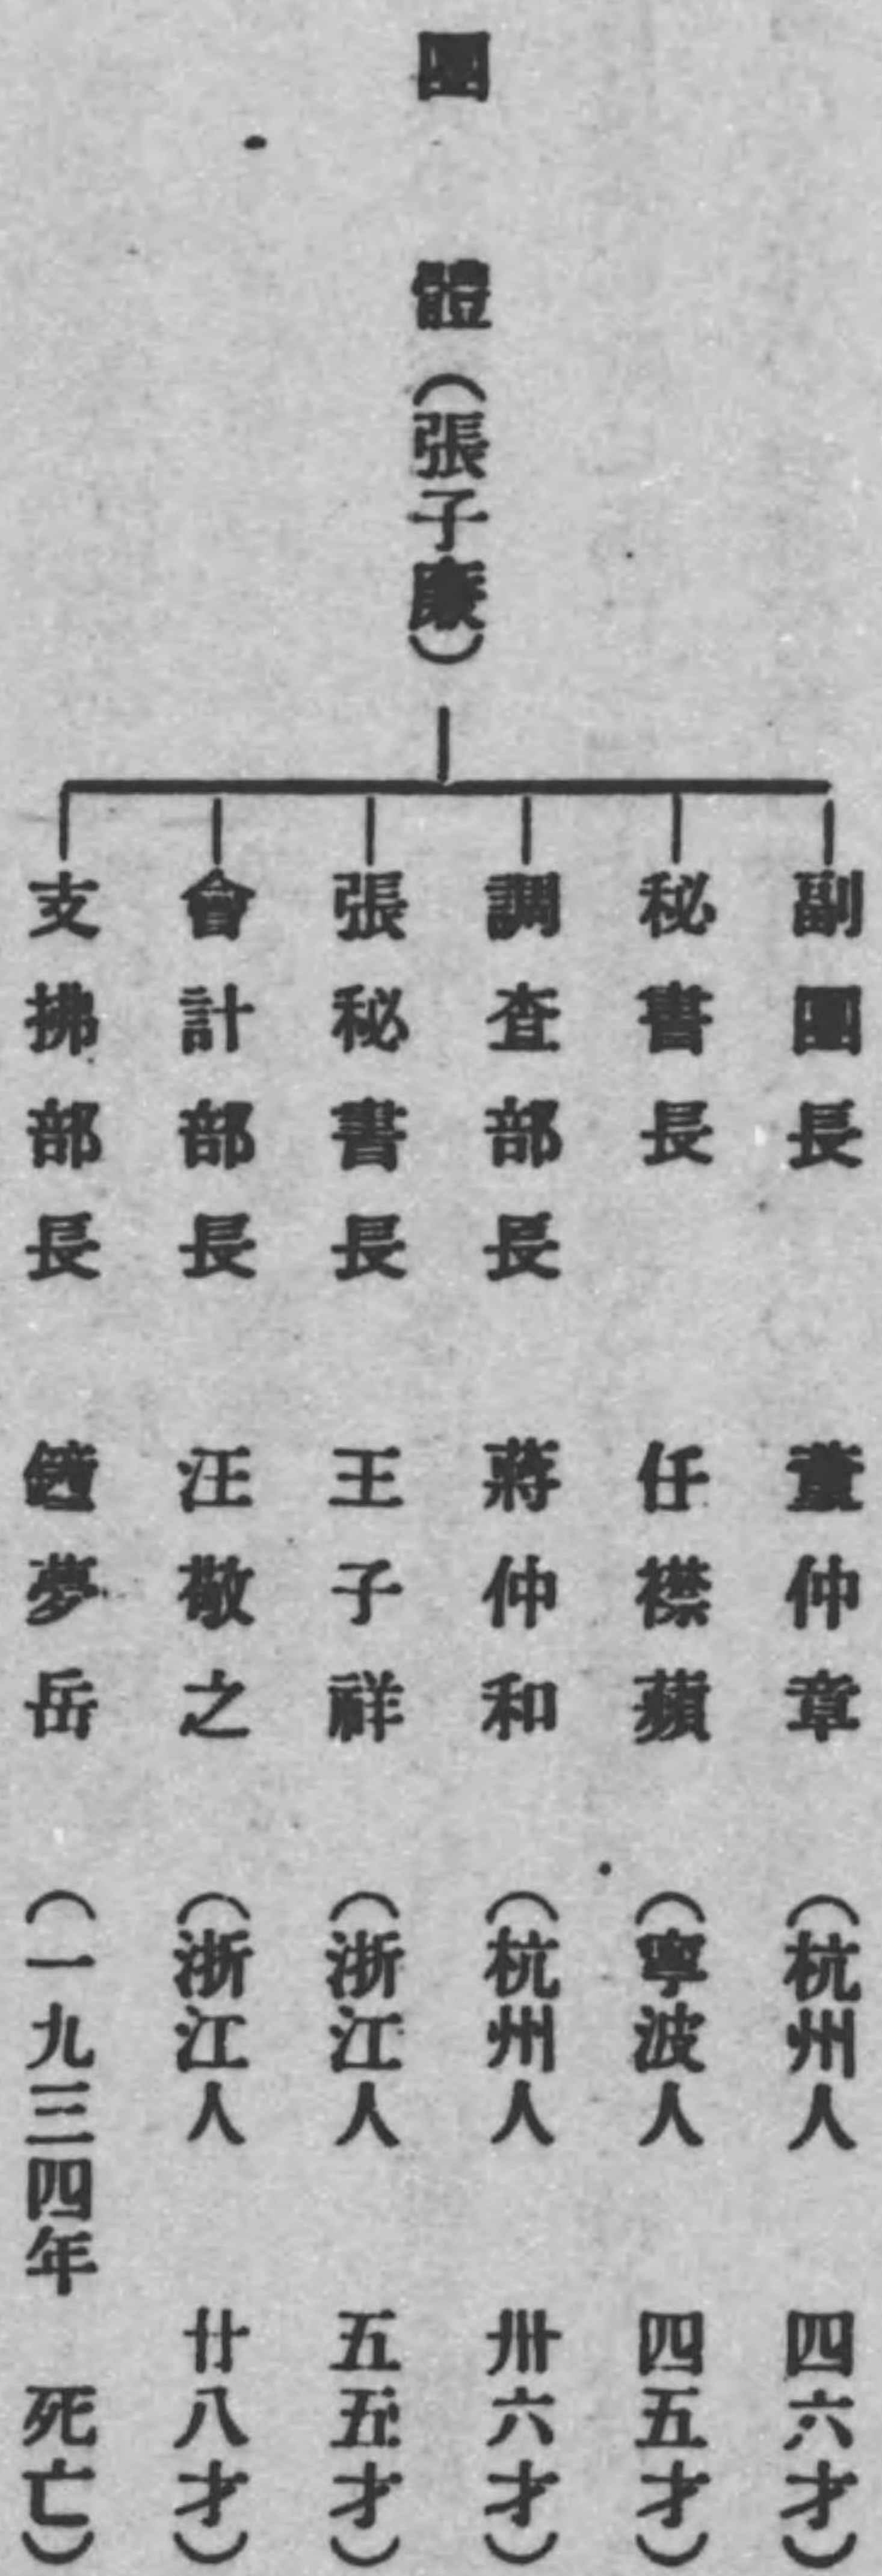 團體(張子廉)
副團長 董仲章 (杭州人 四六才)
秘書長 任襟蘋 (寧波人 四五才)
調查部長 蔣仲和 (杭州人 卅六才)
張秘書長 王子祥 (浙江人 五五才)
會計部長 汪敬之 (浙江人 廿八才)
支拂部長 鐘夢岳 (一九三四年 死亡)